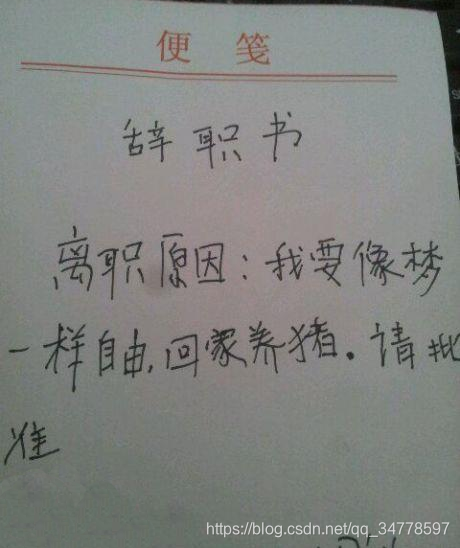 便笺
辞职书
离职原因：我要像梦
一样自由,回家养猪。请批
准
https://blog.csdn.net/qq_34778597